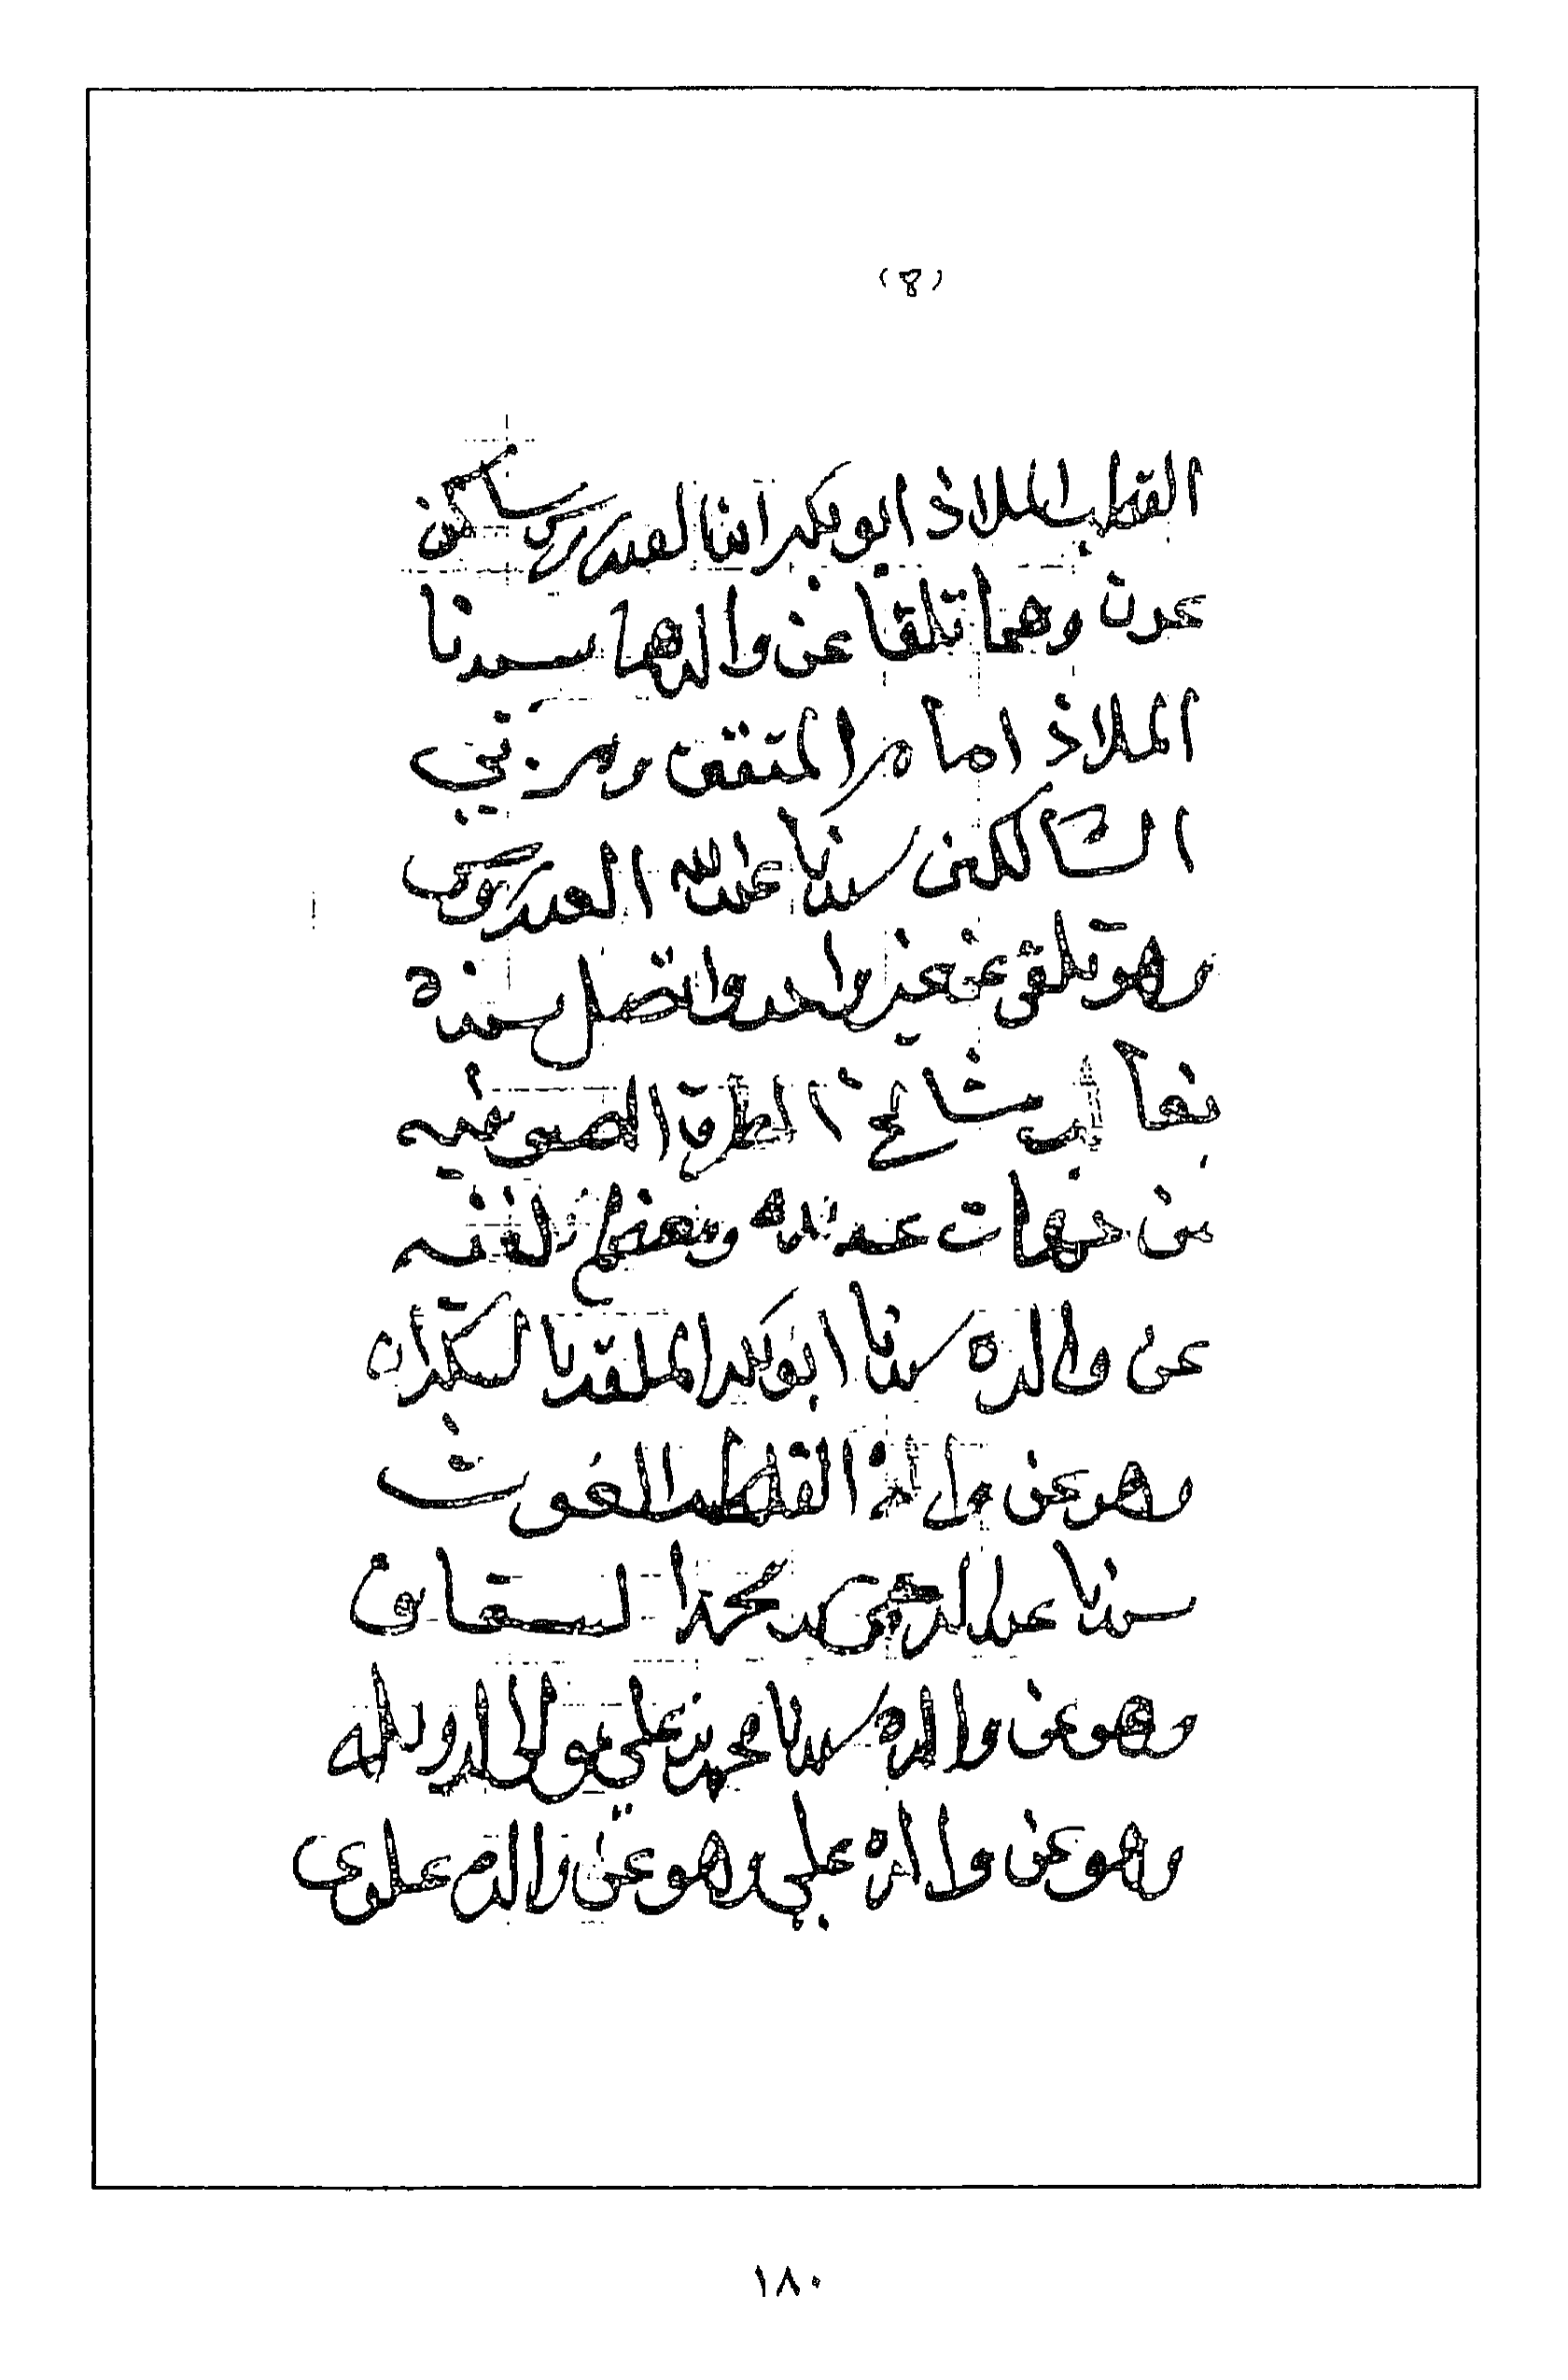 (8)
القطب الملاذ ابو بكر ابنا لعيدروس ساكن
عدن وهما تلقا عن والدهما سيدنا
الملاذ امام المتقين ومربي
السالكين سيدنا عبدالله العيدروس
وهو تلقى عن غير واحد واتصل سنده
مشائخ الطرق الصوفيه
من جهات عديده ومعظم
عن والده سيدنا ابو بكر الملقب بالسكران
وهو عن والده القطب الغوث
سيدنا عبدالرحمن بن محمد السقاف
وهو عن والده سيدنا محمد بن علي مولى الدويله
وهو عن والده علي وهو عن والده علوي
١٨٠